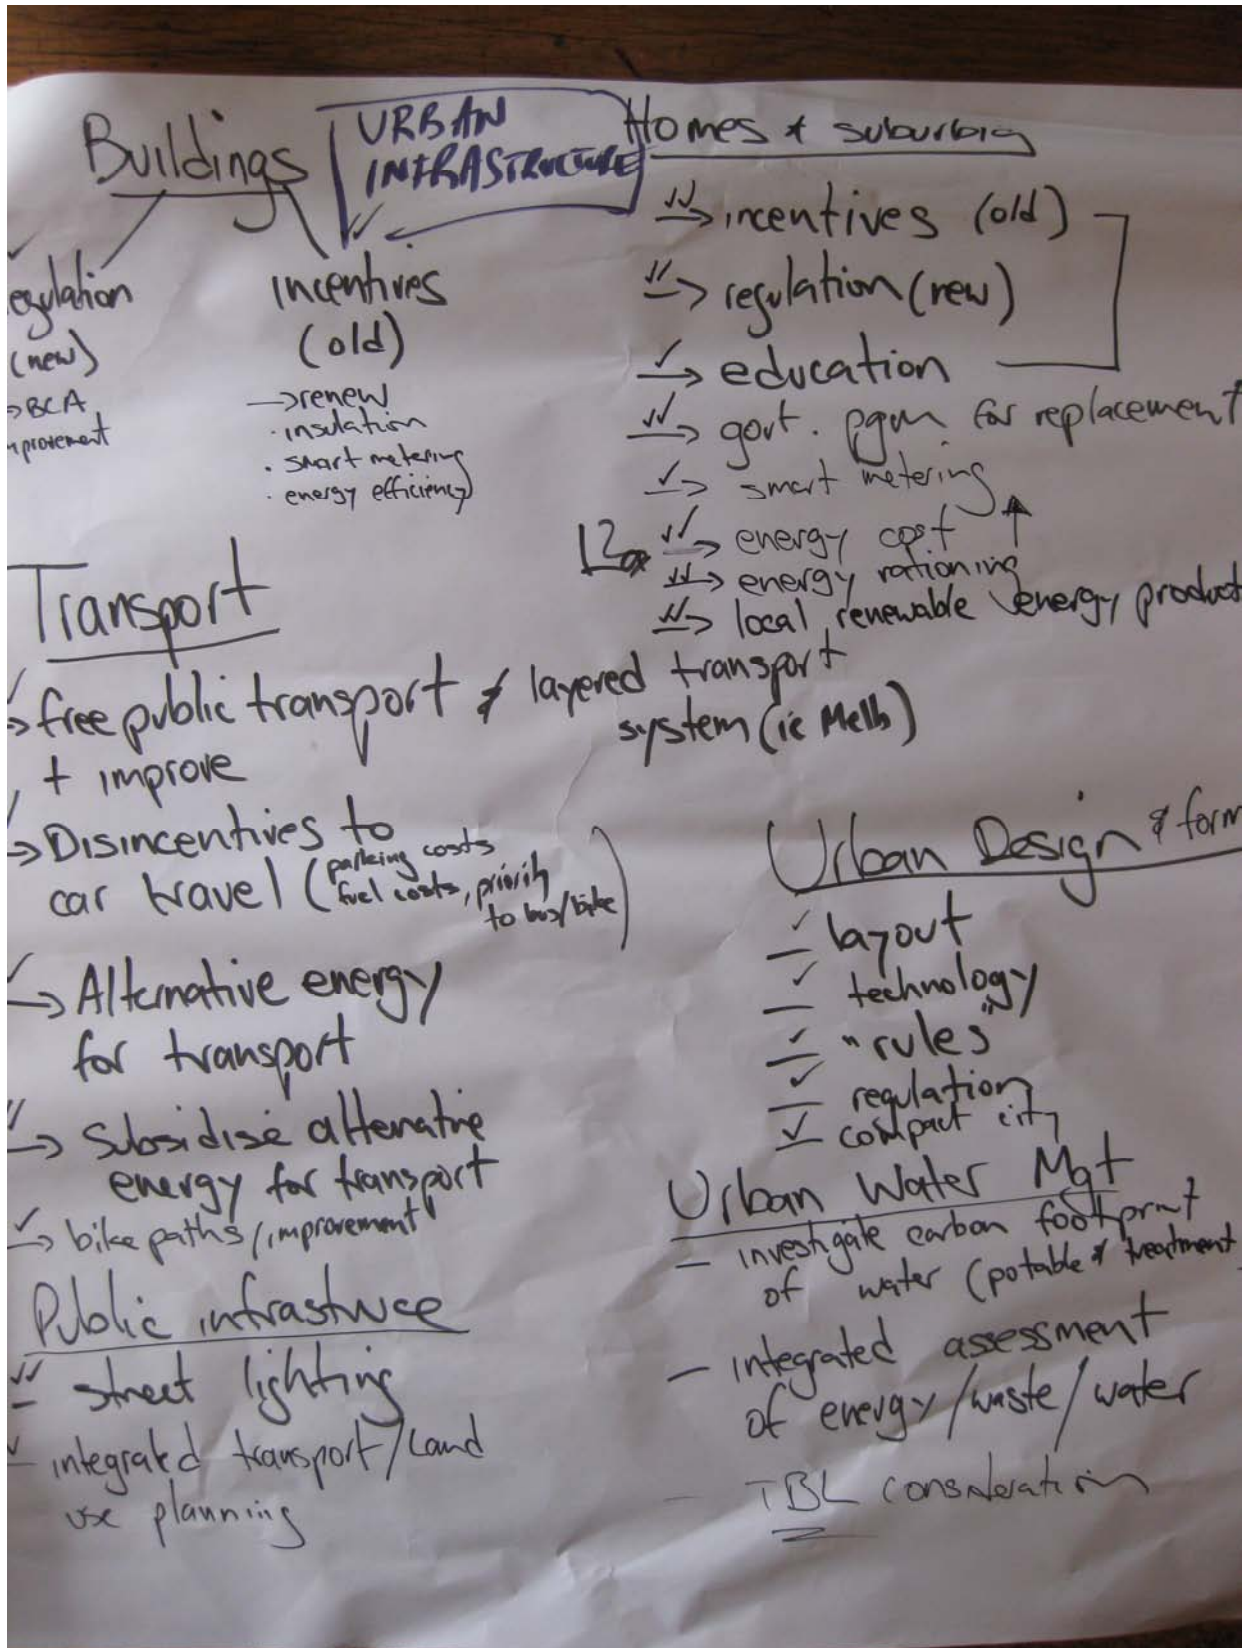 Buildings
URBAN
INFRASTRUCTURE
egulation
(new)
→BCA
provement
incentives
(old)
→renew
· insulation
· smart metering
· energy efficiency
Homes & suburbia
✓✓→ incentives (old)
✓✓→ regulation (new)
✓→ education
✓✓→ govt. pgm for replacement
✓→ smart metering
✓✓→ energy cost ↑
✓✓→ energy rationing
✓✓→ local renewable energy product
Transport
✓→ free public transport & layered transport
system (ie Melb)
+ improve
→ Disincentives to
car travel (parking costs
fuel costs, priority
to bus/bike)
✓→ Alternative energy
for transport
✓✓→ Subsidise alternative
energy for transport
✓→ bike paths/improvement
Public infrastuce
✓✓– street lighting
✓– integrated transport/land
use planning
Urban Design & form
✓– layout
✓– technology
✓– "rules"
✓– regulation
✓– compact city
Urban Water Mgt
– investigate carbon footprint
of water (potable & treatment
– integrated assessment
of energy/waste/water
– TBL consideration